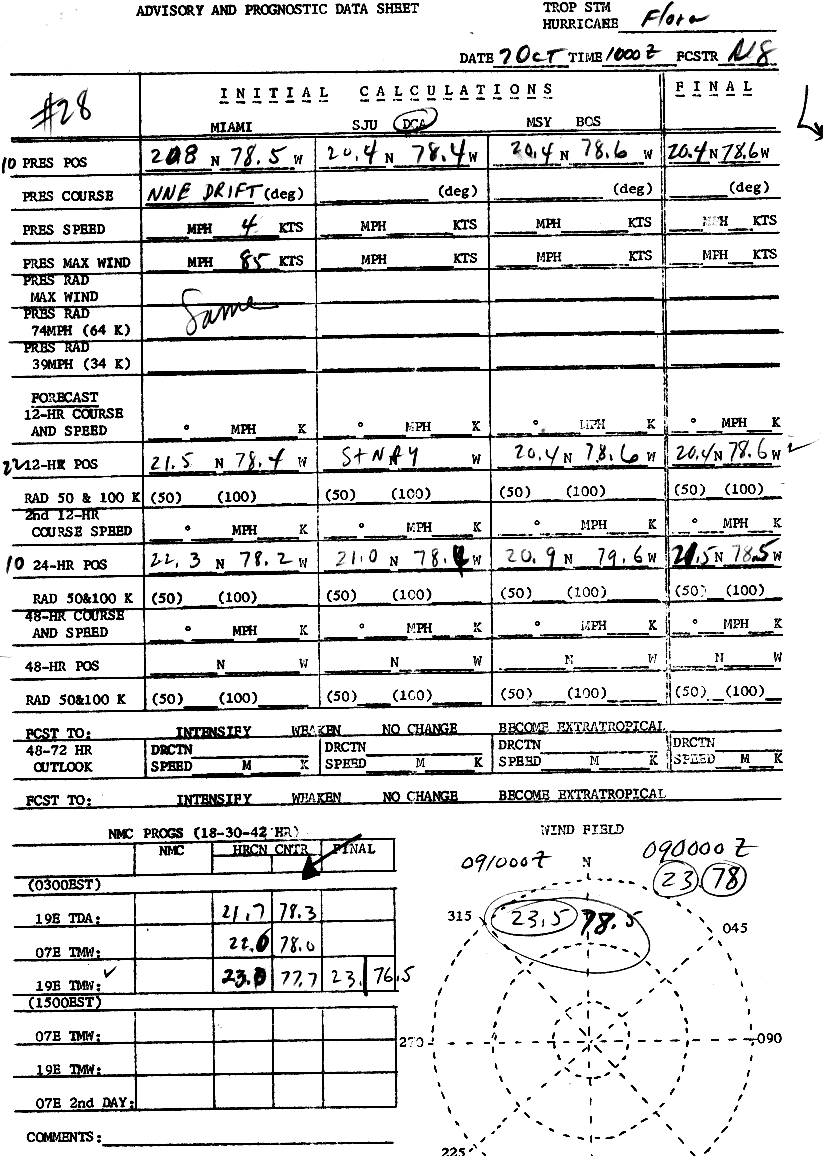 ADVISORY AND PROGNOSTIC DATA SHEET
TROP STM
HURRICANE Flora
DATE 7 OCT TIME 1000 Z FCSTR
#28
INITIAL CALCULATIONS FINAL
MIAMI SJU DCA MSY BOS
10 PRES POS 20.8 N 78.5 W 20.4 N 78.4 W 20.4 N 78.6 W 20.4 N 78.6 W
PRES COURSE NNE DRIFT (deg) (deg) (deg) (deg)
PRES SPEED MPH 4 KTS MPH KTS MPH KTS MPH KTS
PRES MAX WIND MPH 85 KTS MPH KTS MPH KTS MPH KTS
PRES RAD
MAX WIND
Same
PRES RAD
74MPH (64 K)
PRES RAD
39MPH (34 K)
FORECAST
12-HR COURSE
AND SPEED ° MPH K ° MPH K ° MPH K ° MPH K
22 12-HR POS 21.5 N 78.4 W STNRY W 20.4 N 78.6 W 20.4 N 78.6 W ✓
RAD 50 & 100 K (50) (100) (50) (100) (50) (100) (50) (100)
2nd 12-HR
COURSE SPEED ° MPH K ° MPH K ° MPH K ° MPH K
10 24-HR POS 22.3 N 78.2 W 21.0 N 78.4 W 20.9 N 79.6 W 21.5 N 78.5 W
RAD 50&100 K (50) (100) (50) (100) (50) (100) (50) (100)
48-HR COURSE
AND SPEED ° MPH K ° MPH K ° MPH K ° MPH K
48-HR POS N W N W N W N W
RAD 50&100 K (50) (100) (50) (100) (50) (100) (50) (100)
FCST TO: INTENSIFY WEAKEN NO CHANGE BECOME EXTRATROPICAL
48-72 HR DRCTN DRCTN DRCTN DRCTN
OUTLOOK SPEED M K SPEED M K SPEED M K SPEED M K
FCST TO: INTENSIFY WEAKEN NO CHANGE BECOME EXTRATROPICAL
NMC PROGS (18-30-42 HR)
NMC HRCN CNTR FINAL
(0300EST)
19E TDA: 21.7 78.3
07E TMW: 22.0 78.0
19E TMW: ✓ 23.0 77.7 23. 76.5
(1500EST)
07E TMW:
19E TMW:
07E 2nd DAY:
COMMENTS:
WIND FIELD
091000Z N 090000Z
23 78
315 23.5 78.5 045
270 090
225